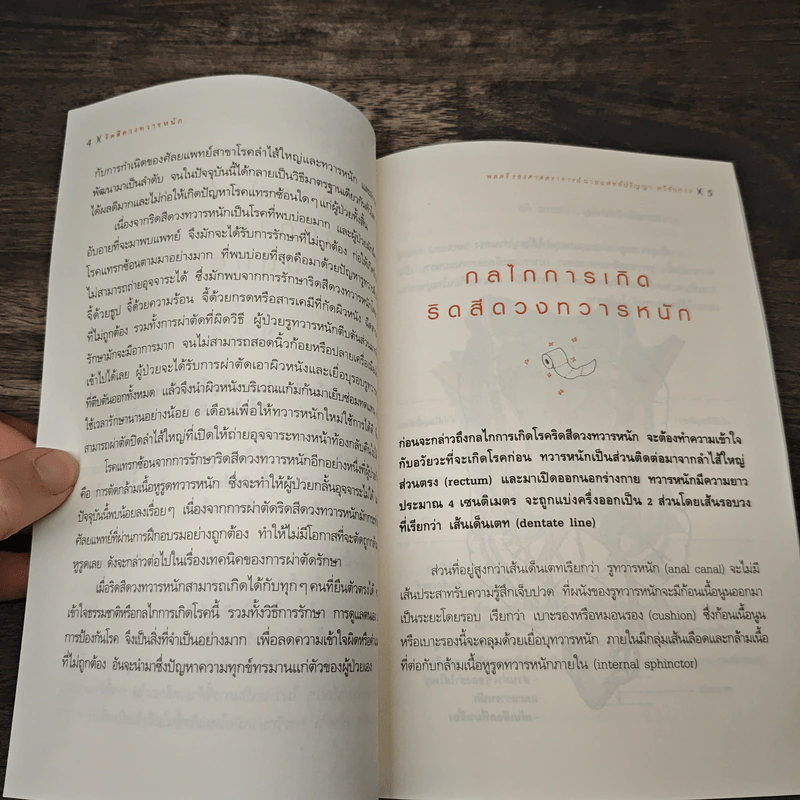 4 ริดสีดวงทวารหนัก
กับการกำเนิดของศัลยแพทย์สาขาโรคลำไส้ใหญ่และทวารหนัก
พัฒนามาเป็นลำดับ จนในปัจจุบันนี้ได้กลายเป็นวิธีมาตรฐานเดียวกัน
ได้ผลดีมากและไม่ก่อให้เกิดปัญหาโรคแทรกซ้อนใดๆ แก่ผู้ป่วยทั้งสิ้น
เนื่องจากริดสีดวงทวารหนักเป็นโรคที่พบบ่อยมาก และผู้ป่วย
อับอายที่จะมาพบแพทย์ จึงมักจะได้รับการรักษาที่ไม่ถูกต้อง ก่อให้
โรคแทรกซ้อนตามมาอย่างมาก ที่พบบ่อยที่สุดคือมาด้วยปัญหารูทวาร
ไม่สามารถถ่ายอุจจาระได้ ซึ่งมักพบจากการรักษาริดสีดวงทวารหนัก
จี้ด้วยธูป จี้ด้วยความร้อน จี้ด้วยกรดหรือสารเคมีที่กัดผิวหนัง
ที่ไม่ถูกต้อง รวมทั้งการผ่าตัดที่ผิดวิธี ผู้ป่วยรูทวารหนักตีบตัน
รักษามักจะมีอาการมาก จนไม่สามารถสอดนิ้วก้อยหรือปลายเครื่องมือ
เข้าไปได้เลย ผู้ป่วยจะได้รับการผ่าตัดเอาผิวหนังและเยื่อบุรอบรูทวาร
ที่ตีบตันออกทั้งหมด แล้วจึงนำผิวหนังบริเวณแก้มก้นมาเย็บซ่อมทดแทน
ใช้เวลารักษานานอย่างน้อย 6 เดือนเพื่อให้ทวารหนักใหม่ใช้การได้
สามารถผ่าตัดปิดลำไส้ใหญ่ที่เปิดให้ถ่ายอุจจาระทางหน้าท้องกลับคืน
โรคแทรกซ้อนจากการรักษาริดสีดวงทวารหนักอีกอย่างหนึ่งที่
คือ การตัดกล้ามเนื้อหูรูดทวารหนัก ซึ่งจะทำให้ผู้ป่วยกลั้นอุจจาระไม่ได้
ปัจจุบันนี้พบน้อยลงเรื่อยๆ เนื่องจากการผ่าตัดริดสีดวงทวารหนักมัก
ศัลยแพทย์ที่ผ่านการฝึกอบรมอย่างถูกต้อง ทำให้ไม่มีโอกาสที่จะตัดถูก
หูรูดเลย ดังจะกล่าวต่อไปในเรื่องเทคนิคของการผ่าตัดรักษา
เมื่อริดสีดวงทวารหนักสามารถเกิดได้กับทุกๆ คนที่ยืนตัวตรงได้
เข้าใจธรรมชาติหรือกลไกการเกิดโรคนี้ รวมทั้งวิธีการรักษา การดูแล
การป้องกันโรค จึงเป็นสิ่งที่จำเป็นอย่างมาก เพื่อลดความเข้าใจผิดหรือ
ที่ไม่ถูกต้อง อันจะนำมาซึ่งปัญหาความทุกข์ทรมานแก่ตัวของผู้ป่วยเอง
5
กลไกการเกิด
ริดสีดวงทวารหนัก
ก่อนจะกล่าวถึงกลไกการเกิดโรคริดสีดวงทวารหนัก จะต้องทำความเข้าใจ
กับอวัยวะที่จะเกิดโรคก่อน ทวารหนักเป็นส่วนติดต่อมาจากลำไส้ใหญ่
ส่วนตรง (rectum) และมาเปิดออกนอกร่างกาย ทวารหนักมีความยาว
ประมาณ 4 เซนติเมตร จะถูกแบ่งครึ่งออกเป็น 2 ส่วนโดยเส้นรอบวง
ที่เรียกว่า เส้นเด็นเตท (dentate line)
ส่วนที่อยู่สูงกว่าเส้นเด็นเตทเรียกว่า รูทวารหนัก (anal canal) จะไม่มี
เส้นประสาทรับความรู้สึกเจ็บปวด ที่ผนังของรูทวารหนักจะมีก้อนเนื้อนูนออกมา
เป็นระยะโดยรอบ เรียกว่า เบาะรองหรือหมอนรอง (cushion) ซึ่งก้อนเนื้อนูน
หรือเบาะรองนี้จะคลุมด้วยเยื่อบุทวารหนัก ภายในมีกลุ่มเส้นเลือดและกล้ามเนื้อ
ที่ต่อกับกล้ามเนื้อหูรูดทวารหนักภายใน (internal sphinctor)